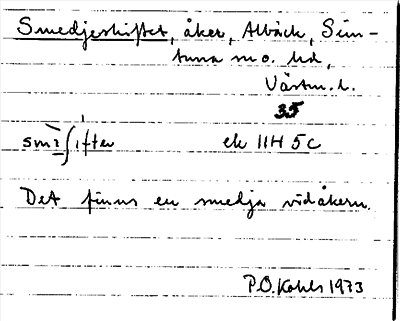 Smedjeskiftet, åker, Albäck, Sim-
tuna sn o. hd,
Västm. l.
35
ek 11H 5c
Det finns en smedja vid åkern.
P.O. Kohls 1973